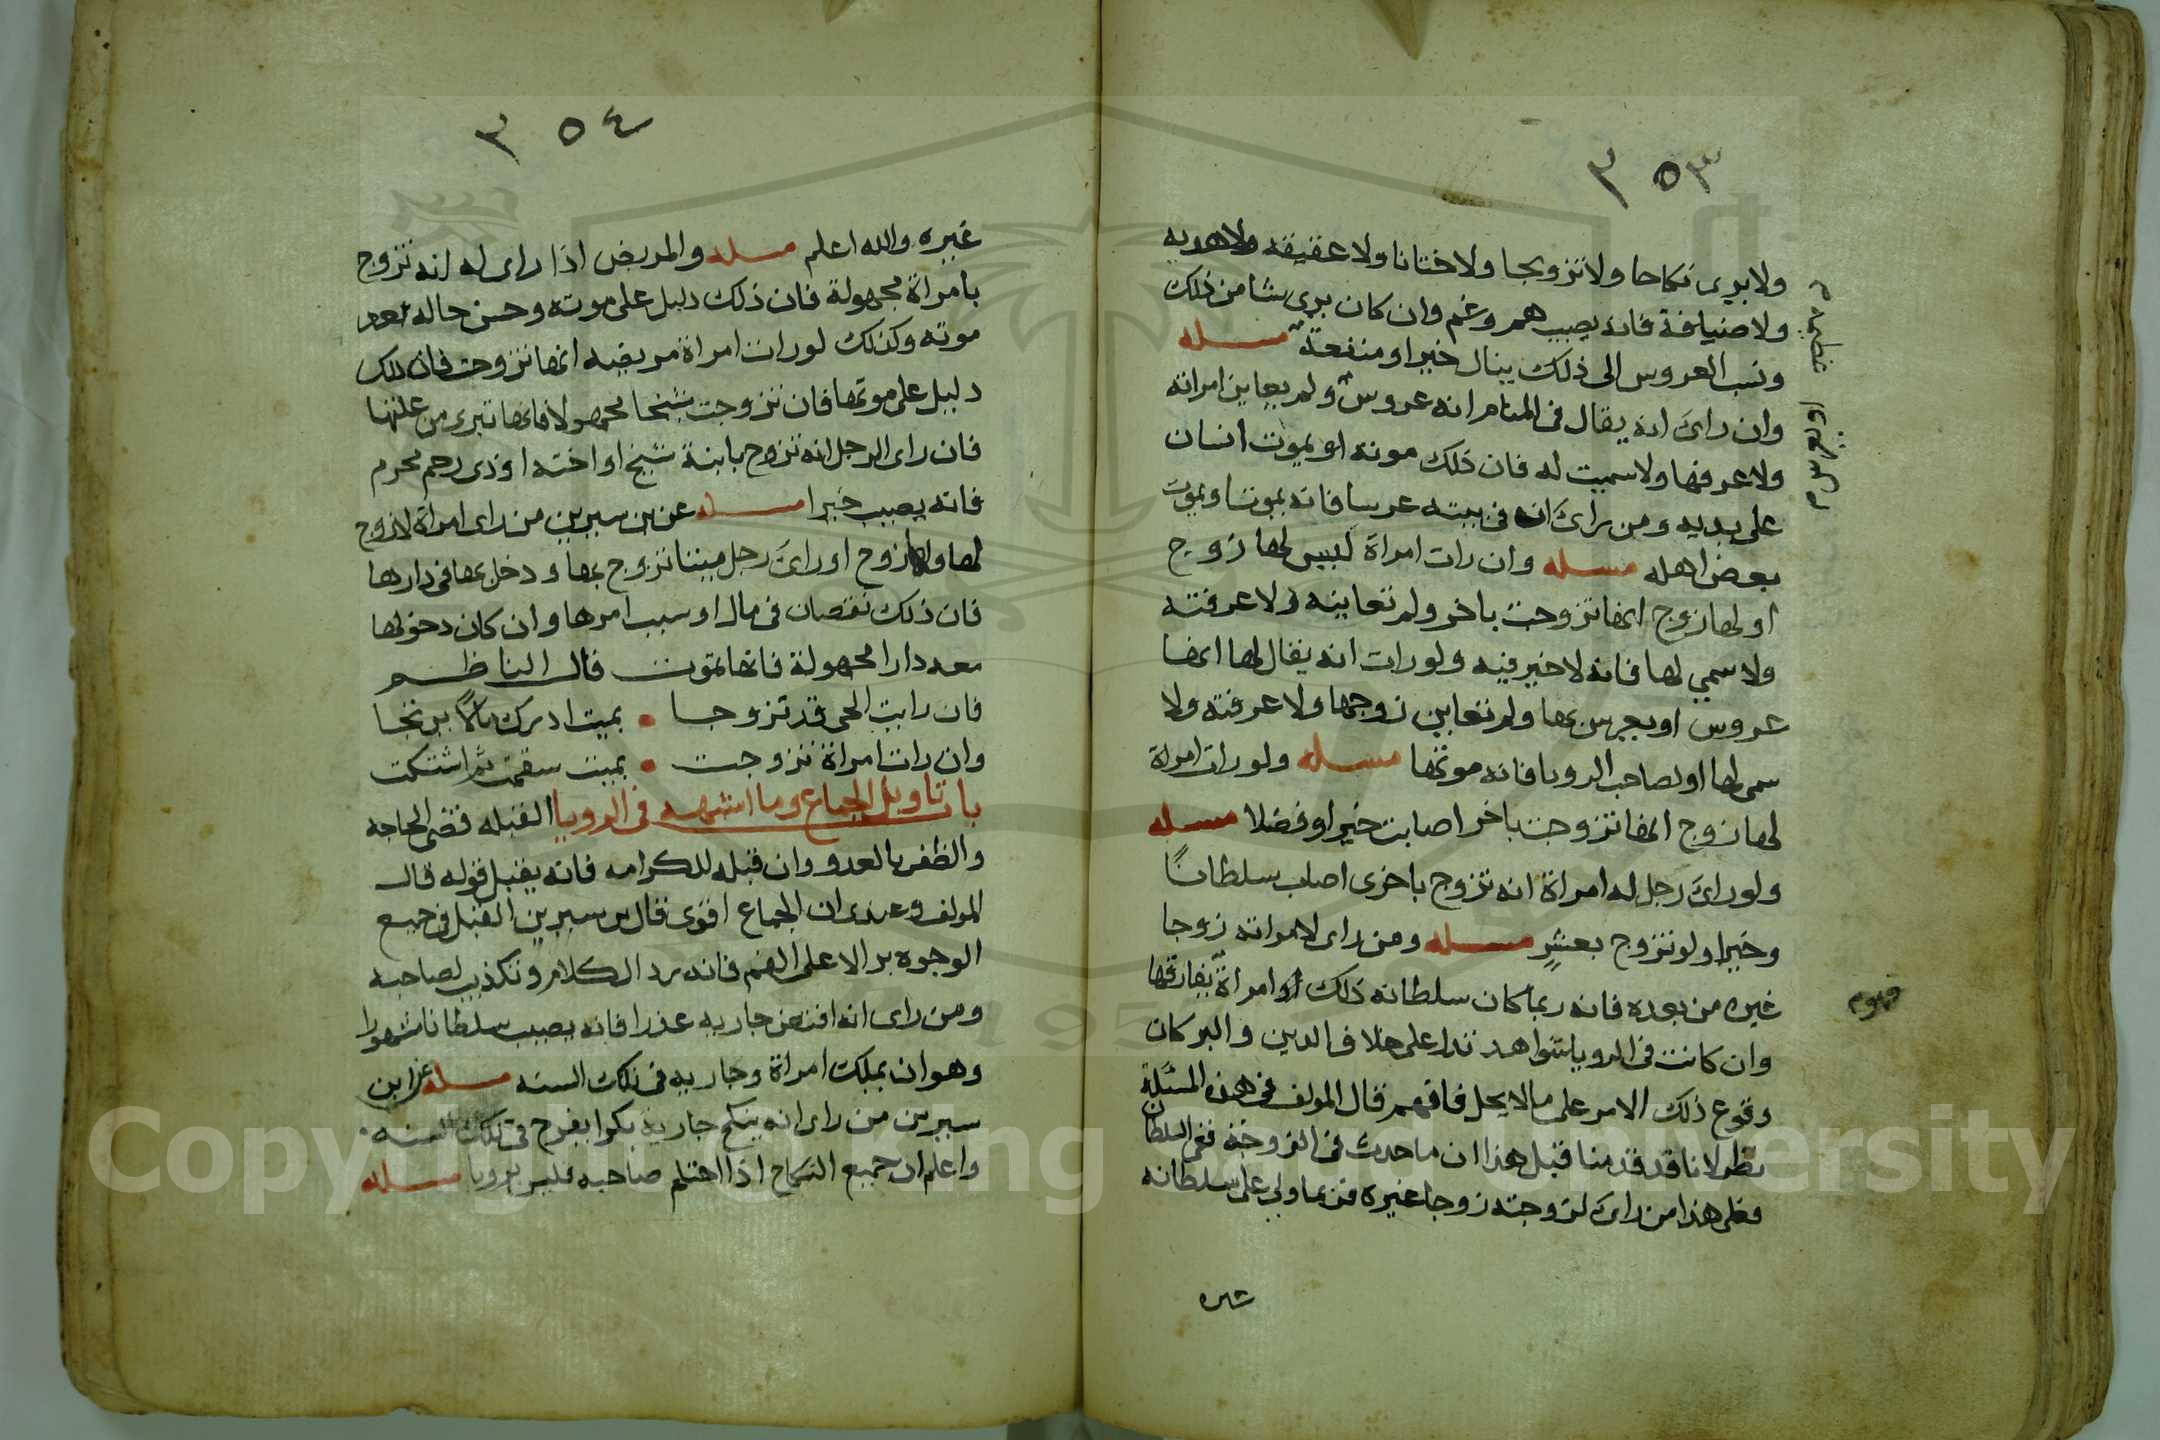 ٣٥٣
ولا يرى نكاحا ولا تزويجا ولا ختانا ولا عقيقه ولا هديه
ولا ضيافة فانه يصيب هم وغم وان كان يرى شا من ذلك
ونسب العروس الى ذلك ينال خيرا او منفعة مسله
وان راىَ انه يقال فى المنام انه عروس ولم يعاين امراته
ولا عرفها ولا سميت له فان ذلك موته او يموت انسان
على يديه ومن راىَ انه فى بيته عرسا فانه يموت او يموت
بعض اهله مسله وان رات امراة ليس لها زوج
او لها زوج انها تزوجت باخر ولم تعاينه ولا عرفته
ولا سمي لها فانه لا خير فيه ولو رات انه يقال لها انها
عروس او يعرس بها ولم تعاين زوجها ولا عرفته ولا
سمى لها او لصاحب الرويا فانه موتها مسله ولو رات امراة
لها زوج انها تزوجت باخر اصابت خيرا او فضلا مسله
ولو راىَ رجل له امراة انه تزوج باخرى اصاب سلطاناً
وخيرا ولو تزوج بعشرٍ مسله ومن راى لامراته زوجا
غيره من بعده فانه ربما كان سلطانه ذلك او امراة يفارقها
وان كانت فى الرويا شواهد تدل على خلاف الدين والبر كان
وقوع ذلك الامر على مالا يحل فافهم قال المولف فى هذه المسئلة
نظر لانا قد قدمنا قبل هذا ان ما حدث فى الزوجة ففى السلطان
فعلى هذا من راىَ لزوجته زوجا غيره فربما ولي على سلطانه
فهوم
٣٥٤
غيره والله اعلم مسله والمريض اذا راى له انه تزوج
بامراة مجهولة فان ذلك دليل على موته وحسن حاله بعد
موته وكذلك لو رات امراة مريضه انها تزوجت فان ذلك
دليل على موتها فان تزوجت شيخا مجهولا فانها تبرى من علتها
فان راى الرجل انه تزوج بابنة شيخ او اخته او ذى رحم محرم
فانه يصيب خيرا مسله عن بن سيرين من راى امراة لا زوج
لها ولها زوج او راىَ رجل ميتا تزوج بها ودخل بها فى دارها
فان ذلك نقصان فى مال او سبب امرها وان كان دخولها
معه دارا مجهولة فانها تموت قال الناظم
فان رايت الحى قد تزوجا • بميت ادرك مالاً يرتجا
وان رات امراة تزوجت • بميت سقمت ثم اشتكت
باب تاويل الجماع وما اشبهه فى الرويا القبله قضى الحاجه
والظفر بالعدو وان قبله للكرامه فانه يقبل قوله قال
المولف وعندى ان الجماع اقوى قال بن سيرين القبل فى جميع
الوجوه بر الا على الفم فانه رد الكلام وتكذيب لصاحبه
ومن راى انه افتض جاريه عذرا فانه يصيب سلطانا مشهورا
وهو ان يملك امراة وجاريه فى تلك السنه مسله عن ابن
سيرين من راى انه ينكح جارية بكرا يفرح فى تلك السنه •
واعلم ان جميع النكاح اذا احتلم صاحبه فليس برويا مسله